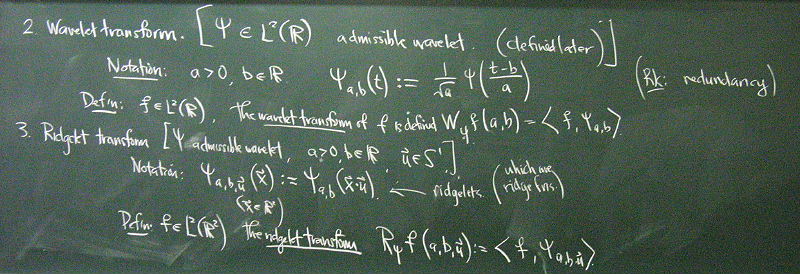 2. Wavelet transform. [Ψ ∈ L²(ℝ) admissible wavelet. (defined later)]
Notation: a>0, b∈ℝ Ψ_{a,b}(t) := 1/√a Ψ((t-b)/a) (Rk: redundancy)
Defin: f∈L²(ℝ), the wavelet transform of f is defined W_ψ f(a,b) = ⟨f, Ψ_{a,b}⟩.
3. Ridgelet transform [Ψ admissible wavelet, a>0, b∈ℝ, u⃗∈S¹].
Notation: Ψ_{a,b,u⃗}(x⃗) := Ψ_{a,b}(x⃗·u⃗). ← ridgelets. (which are ridge fns.)
(x⃗∈ℝ²)
Defin: f∈L²(ℝ²) the ridgelet transform R_ψ f(a,b,u⃗) := ⟨f, Ψ_{a,b,u⃗}⟩